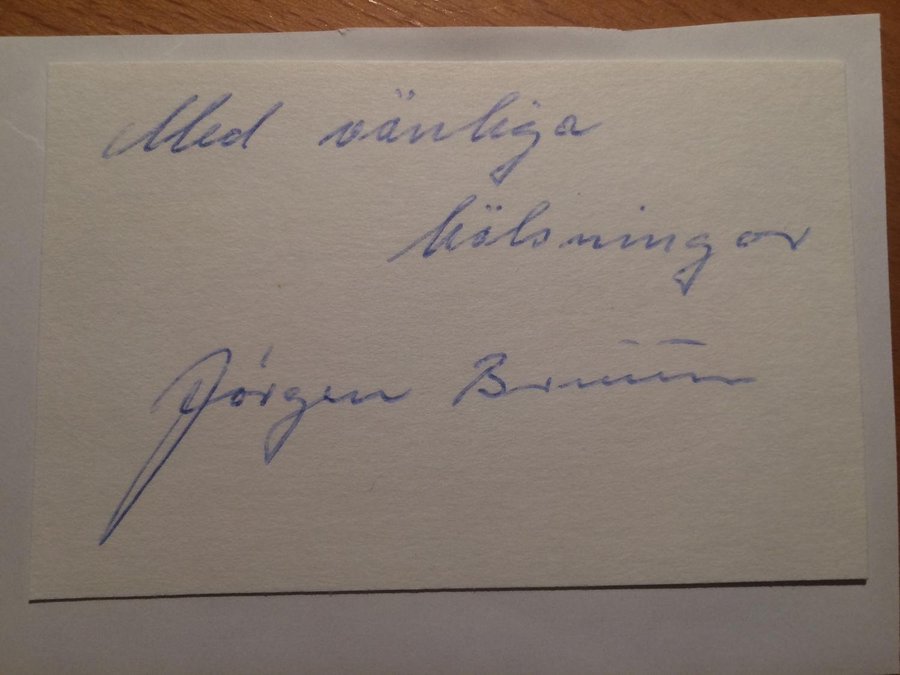 Med vänliga
hälsningar
Jörgen Bruun